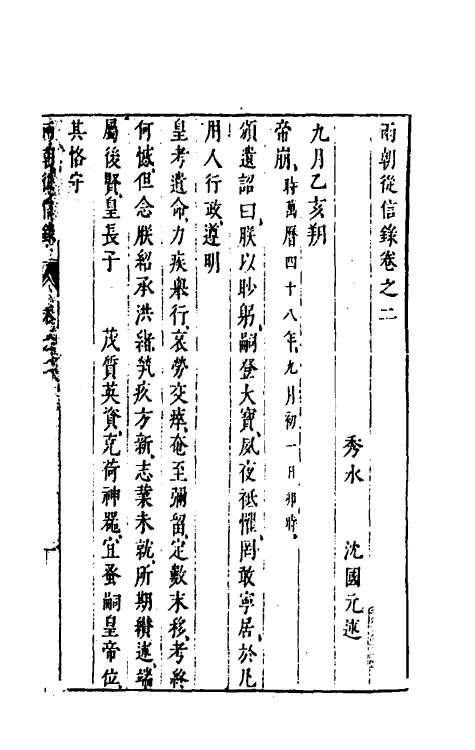 兩朝從信錄卷之二
秀水 沈國元述
九月乙亥朔
帝崩時萬曆四十八年九月初一日卯時
頒遺詔曰朕以眇躬嗣登大寶夙夜祗懼罔敢寧居於凡
用人行政遵明
皇考遺命力疾舉行哀勞交瘁奄至彌留定數末移考終
何憾但念朕紹承洪緒㷀疚方新志業未就所期纘述端
屬後賢皇長子 茂質英資克荷神器宜蚤嗣皇帝位
其恪守
兩朝從信錄 卷之二